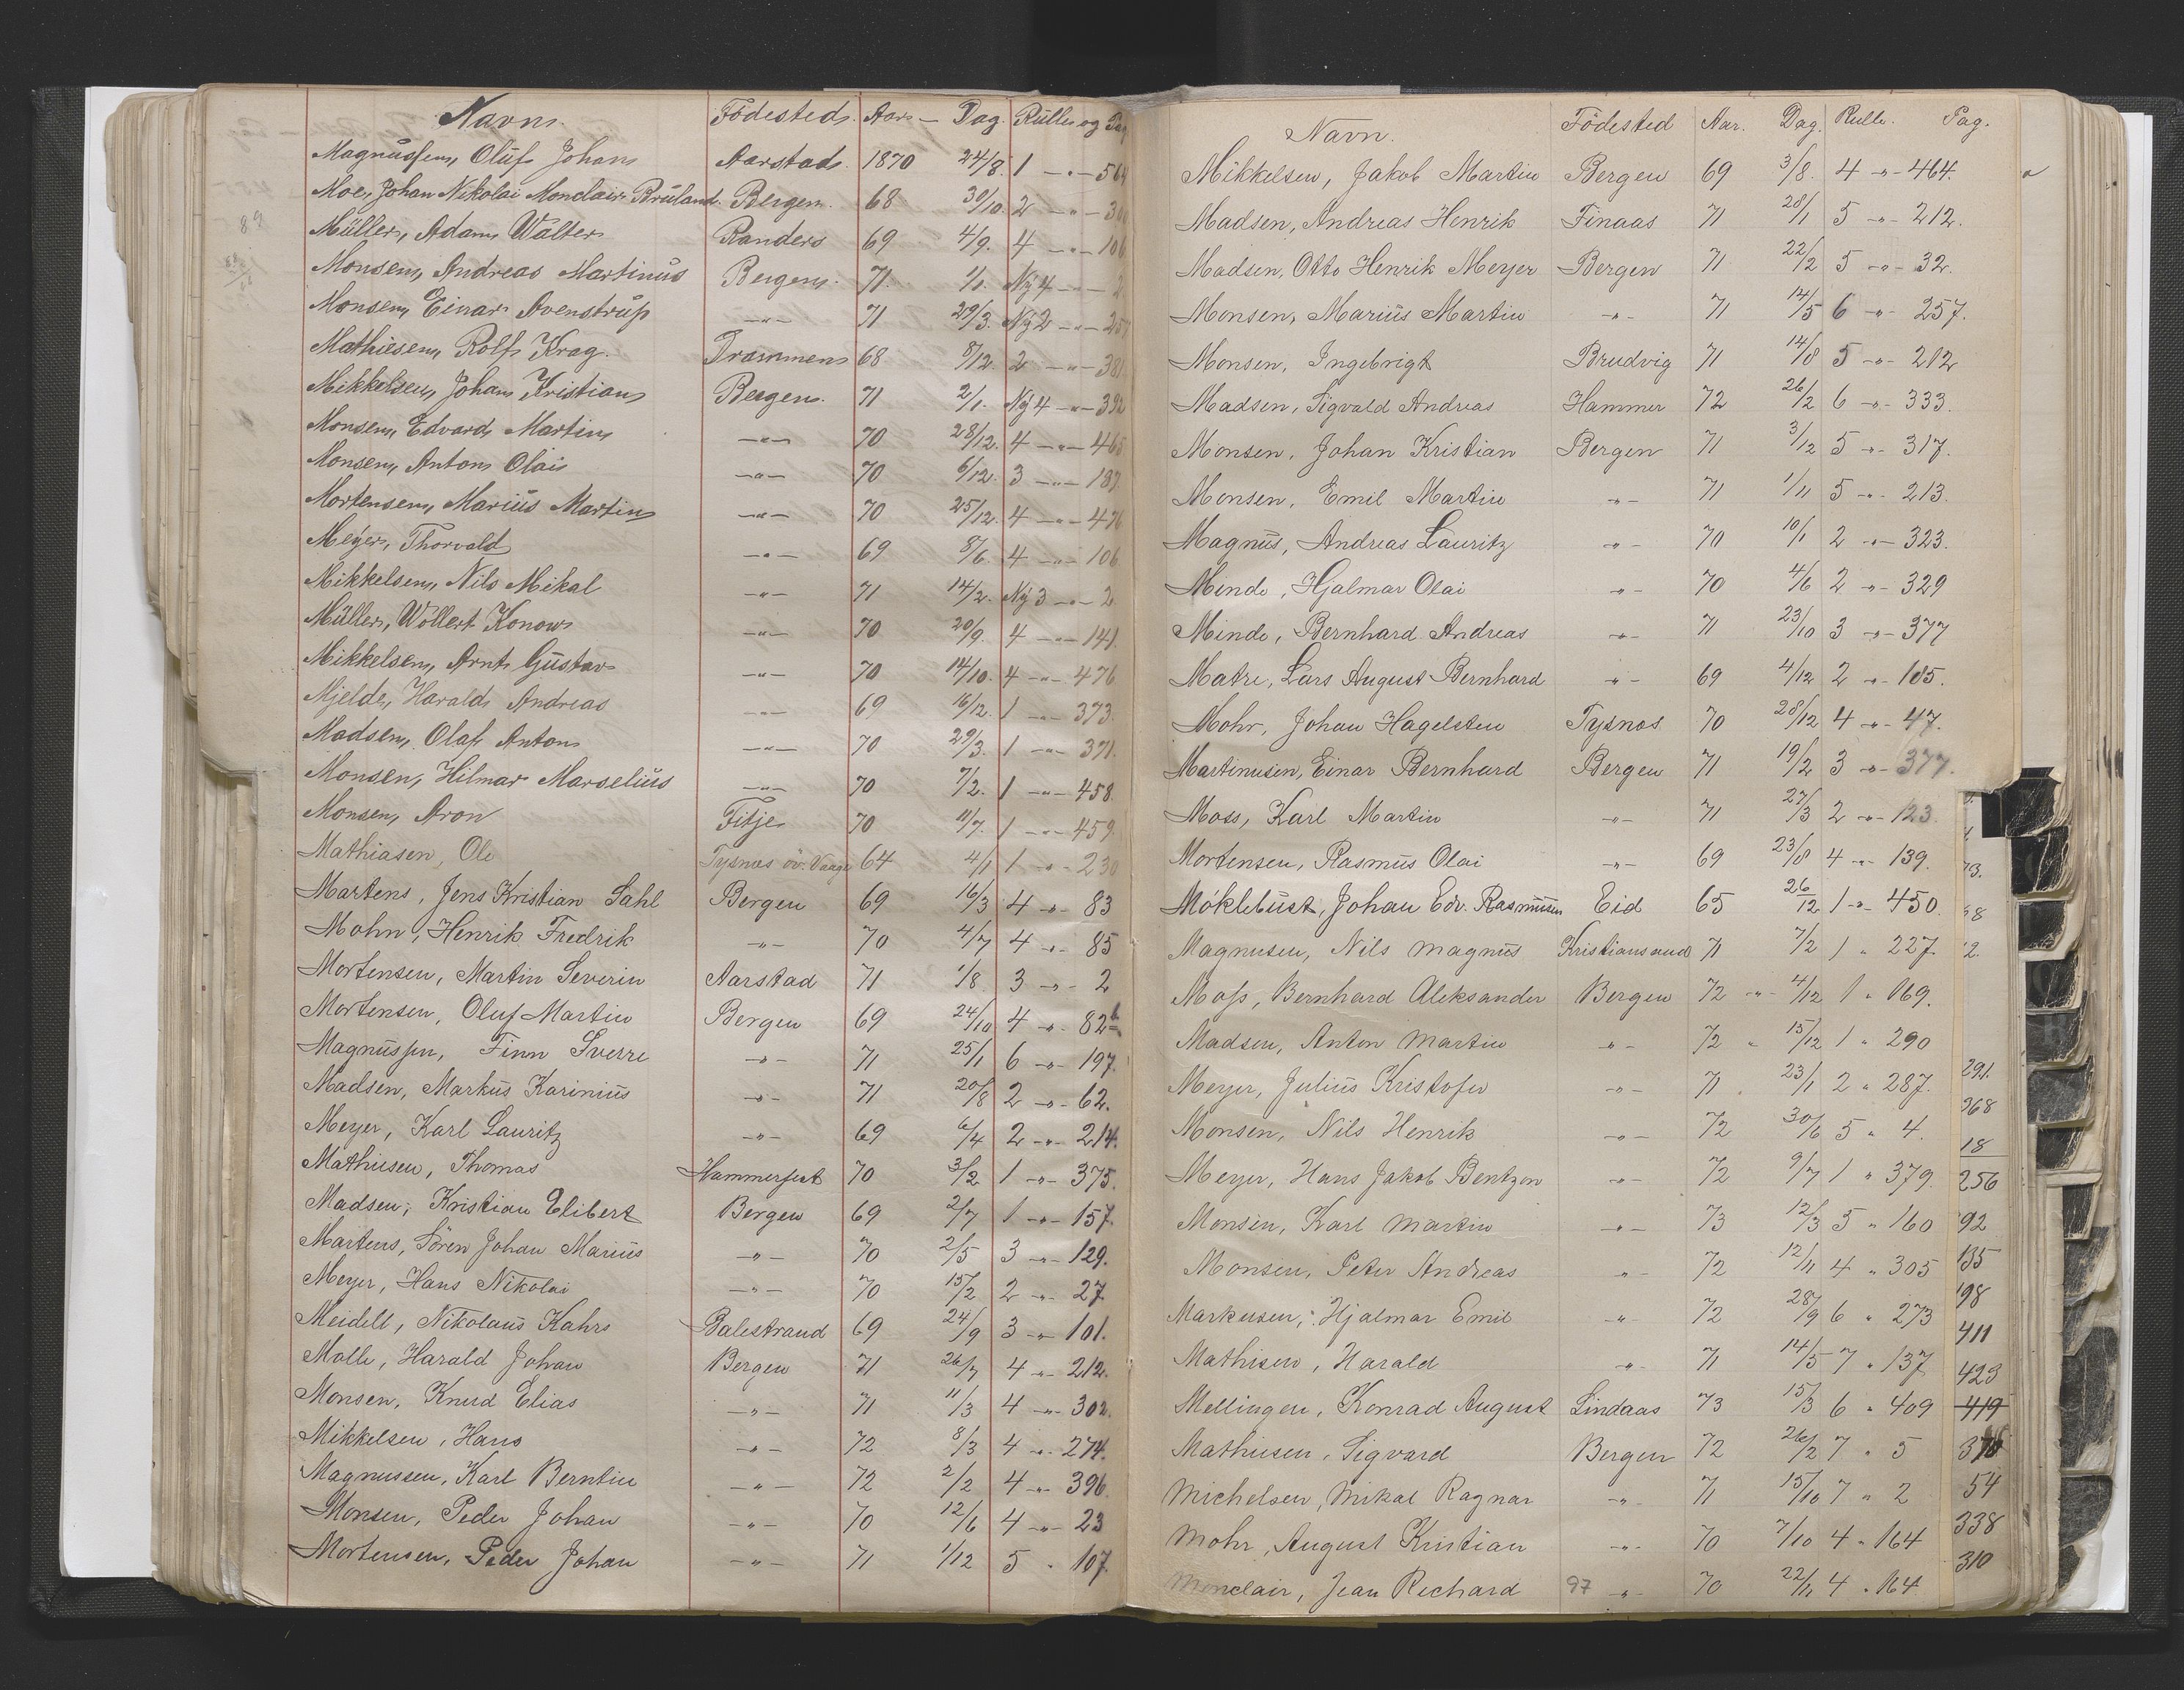 Navn. Födested. Aar — Dag. Rulle og Pag
Magnussen, Oluf Johan Aarstad. 1870 24/8. 1 —"— 564
Moe, Johan Nikolai Monclair Bruland. Bergen. 68 30/10. 2 —"—
Müller, Adam Walter Randers 69 4/9. 4 —"— 106
Monsen, Andreas Martinus Bergen. 71. 1/1. Ny 4 —"— 2
Monsen, Einar Avenstrup —"— 71 29/3. Ny 2 —"—
Mathiesen, Rolf Krag. Drammen 68 8/12. 2 —"— 381
Mikkelsen, Johan Kristian Bergen. 71 2/1. Ny 4 —"— 392
Monsen, Edvard Martin —"— 70 28/12. 4 —"— 465
Monsen, Anton Olai —"— 70 6/12. 3 —"— 187
Mortensen, Marius Martin —"— 70 25/12. 4 —"— 476
Meyer, Thorvald —"— 69 8/6. 4 —"— 106
Mikkelsen, Nils Mikal —"— 71 14/2. Ny 3 —"— 2
Müller, Wollert Konow —"— 70 20/9. 4 —"— 141.
Mikkelsen, Arnt Gustav —"— 70 14/10. 4 —"— 476
Mjelde, Harald Andreas —"— 69 16/12. 1 —"— 373.
Madsen, Olaf Anton —"— 70 29/3. 1 —"— 371.
Monsen, Hilmar Marselius —"— 70 7/2. 1 —"— 458.
Monsen, Aron Fitje 70 11/7. 1 —"— 459.
Mathiasen, Ole Tysnæs öv. Vaage 64 4/1 1 —"— 230
Martens, Jens Kristian Sahl Bergen 69 16/3 4 —"— 83
Mohn, Henrik Fredrik —"— 70 4/7 4 —"— 85
Mortensen, Martin Severin Aarstad 71 1/8. 3 —"— 2
Mortensen, Oluf Martin Bergen 69 24/10 4 —"— 82b
Magnussen, Finn Sverre —"— 71 25/1 6 —"— 197.
Madsen, Markus Karinius —"— 71 20/8 2 —"— 62.
Meyer, Karl Lauritz —"— 69 6/4 2 —"— 214.
Mathiesen, Thomas Hammerfest 70 3/2 1 —"— 375.
Madsen, Kristian Elibert Bergen 69 2/7 1 —"— 157.
Martens, Sören Johan Marius —"— 70 2/5 3 —"— 129.
Meyer, Hans Nikolai —"— 70 15/2 2 —"— 27.
Meidell, Nikolaus Kahrs Balestrand 69 24/9 3 —"— 101.
Molle, Harald Johan Bergen 71 26/7 4 —"— 212.
Monsen, Knud Elias —"— 71 11/3 4 —"— 302.
Mikkelsen, Hans —"— 72 8/3 4 —"— 274.
Magnussen, Karl Berntin —"— 72 2/2 4 —"— 396.
Monsen, Peder Johan —"— 70 12/6 4 —"— 23
Mortensen, Peder Johan —"— 71 1/12 5 " 107.
89
Navn. Födested Aar. Dag. Rulle. Pag.
Mikkelsen, Jakob Martin Bergen 69 3/8. 4 —"— 464.
Madsen, Andreas Henrik Finaas 71 28/1 5 —"— 212.
Madsen, Otto Henrik Meyer Bergen 71 22/2 5 —"— 32.
Monsen, Marius Martin —"— 71 14/5 6 —"— 257.
Monsen, Ingebrigt Brudvig 71 14/8 5 —"— 212
Madsen, Sigvald Andreas Hammer 72 26/2 6 —"— 333.
Monsen, Johan Kristian Bergen 71 3/12 5 —"— 317.
Monsen, Emil Martin —"— 71 1/11 5 —"— 213.
Magnus, Andreas Lauritz —"— 70 10/1 2 —"— 323.
Minde, Hjalmar Olai —"— 70 4/6 2 —"— 329
Minde, Bernhard Andreas —"— 71 23/10 3 —"— 377
Matre, Lars August Bernhard —"— 69 4/12 2 —"— 185.
Mohr, Johan Hagelsten Tysnæs 70 28/12 4 —"— 47.
Martinusen, Einar Bernhard Bergen 71 19/2 3 —"— 377.
Moss, Karl Martin —"— 71 27/3 2 —"— 123.
Mortensen, Rasmus Olai —"— 69 23/8 4 —"— 139.
Möklebust, Johan Edv. Rasmusen Eid 65 26/12 1 —"— 450.
Magnusen, Nils Magnus Kristiansund 71 7/2 1 " 227.
Moss, Bernhard Aleksander Bergen 72 " 4/12 1 " 169.
Madsen, Anton Martin —"— 72 " 15/12 1 " 290
Meyer, Julius Kristofer —"— 71 23/1 2 " 287.
Monsen, Nils Henrik —"— 72 30/6 5 " 4.
Meyer, Hans Jakob Bentzon —"— 72 9/7 1 " 379.
Monsen, Karl Martin —"— 73 12/3 5 " 160
Monsen, Peter Andreas —"— 72 12/11 4 " 305
Markusen, Hjalmar Emil —"— 72 28/9 6 " 273
Mathisen, Harald —"— 71 14/5 7 " 137
Mellingen, Konrad August Lindaas 73 15/3 6 " 409
Mathiesen, Sigvard Bergen 72 26/2 7 " 5
Michelsen, Mikal Ragnar —"— 71 15/10 7 " 2
Mohr, August Kristian —"— 70 7/10 4 " 164
Monclair, Jean Richard 97 —"— 70 22/11 4 " 164
291.
368
18
256
92
135
198
411
423
419
54
338
310